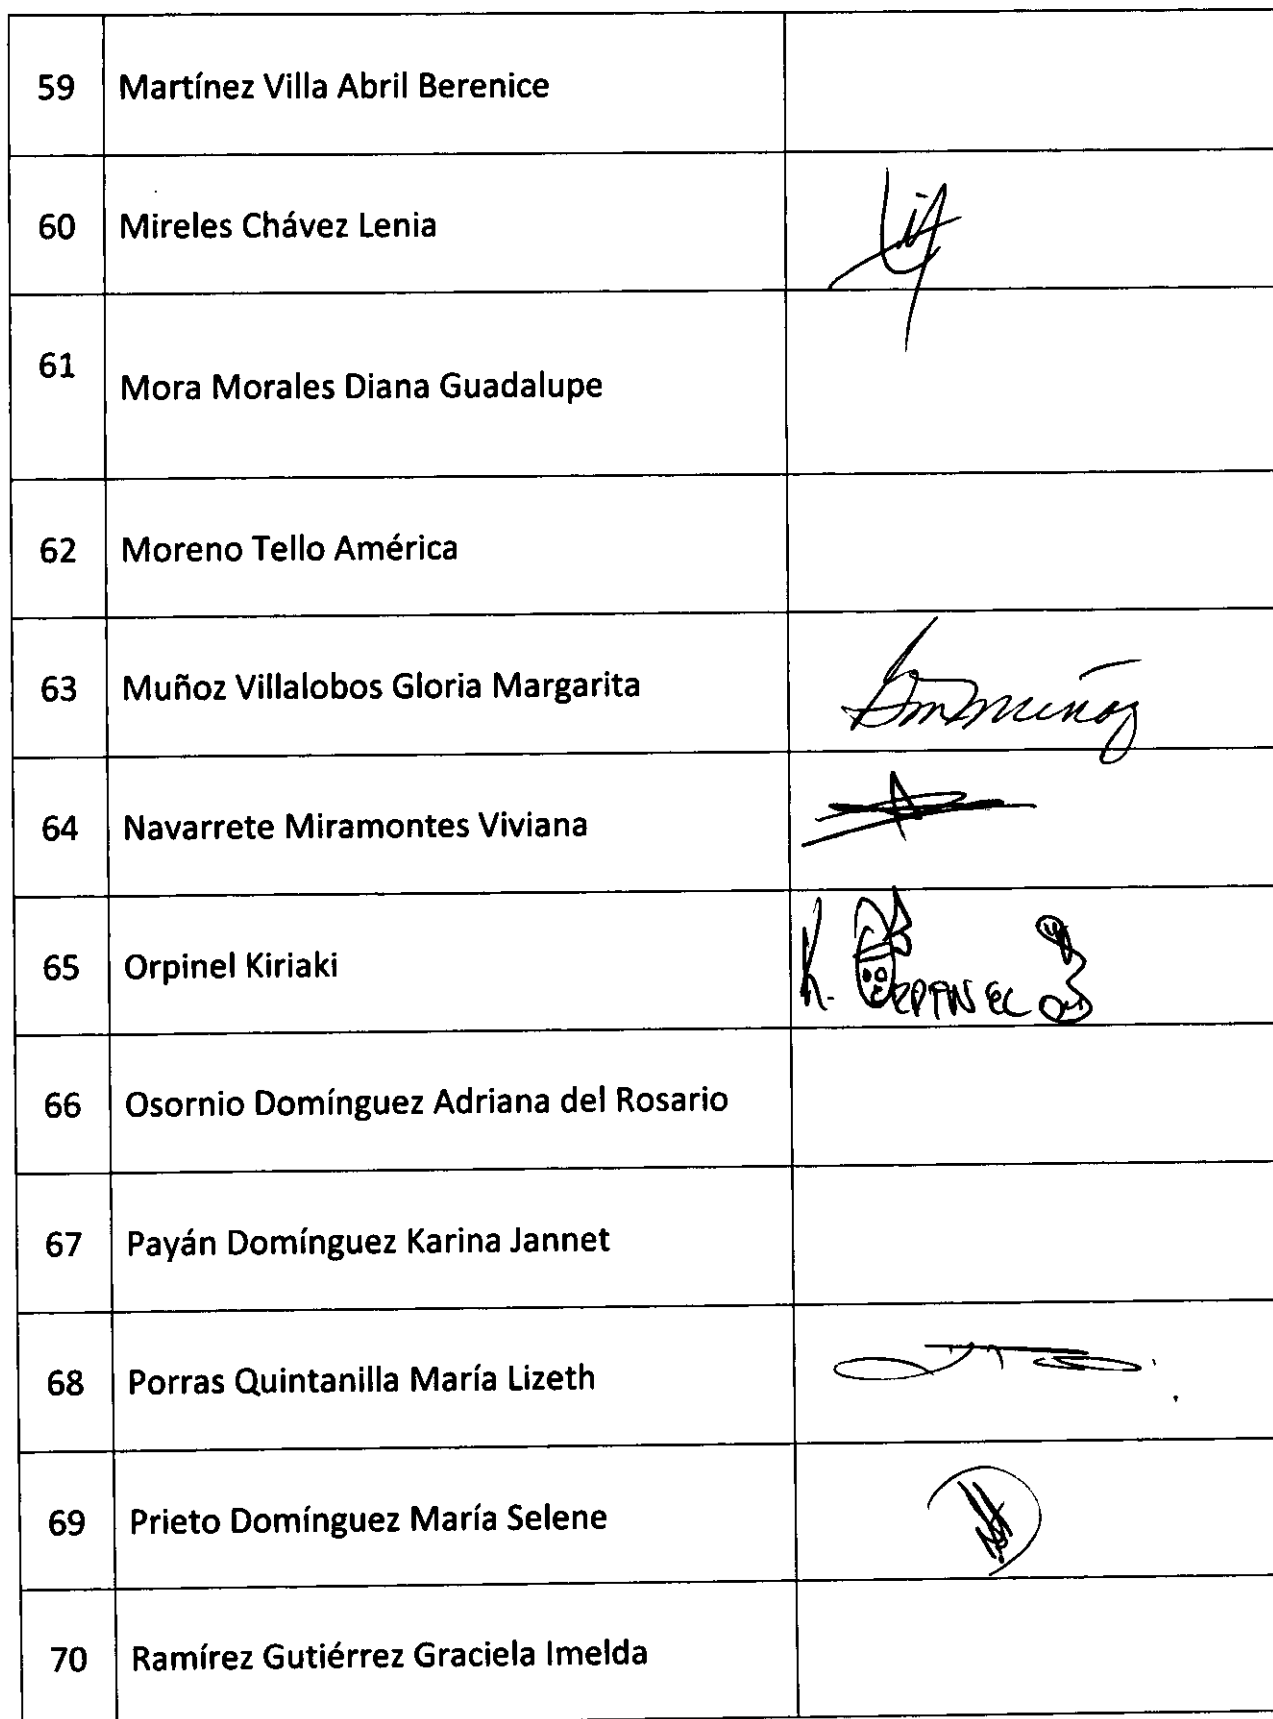 59 Martínez Villa Abril Berenice
60 Mireles Chávez Lenia
61 Mora Morales Diana Guadalupe
62 Moreno Tello América
63 Muñoz Villalobos Gloria Margarita
64 Navarrete Miramontes Viviana
65 Orpinel Kiriaki K.
66 Osornio Domínguez Adriana del Rosario
67 Payán Domínguez Karina Jannet
68 Porras Quintanilla María Lizeth
69 Prieto Domínguez María Selene
70 Ramírez Gutiérrez Graciela Imelda